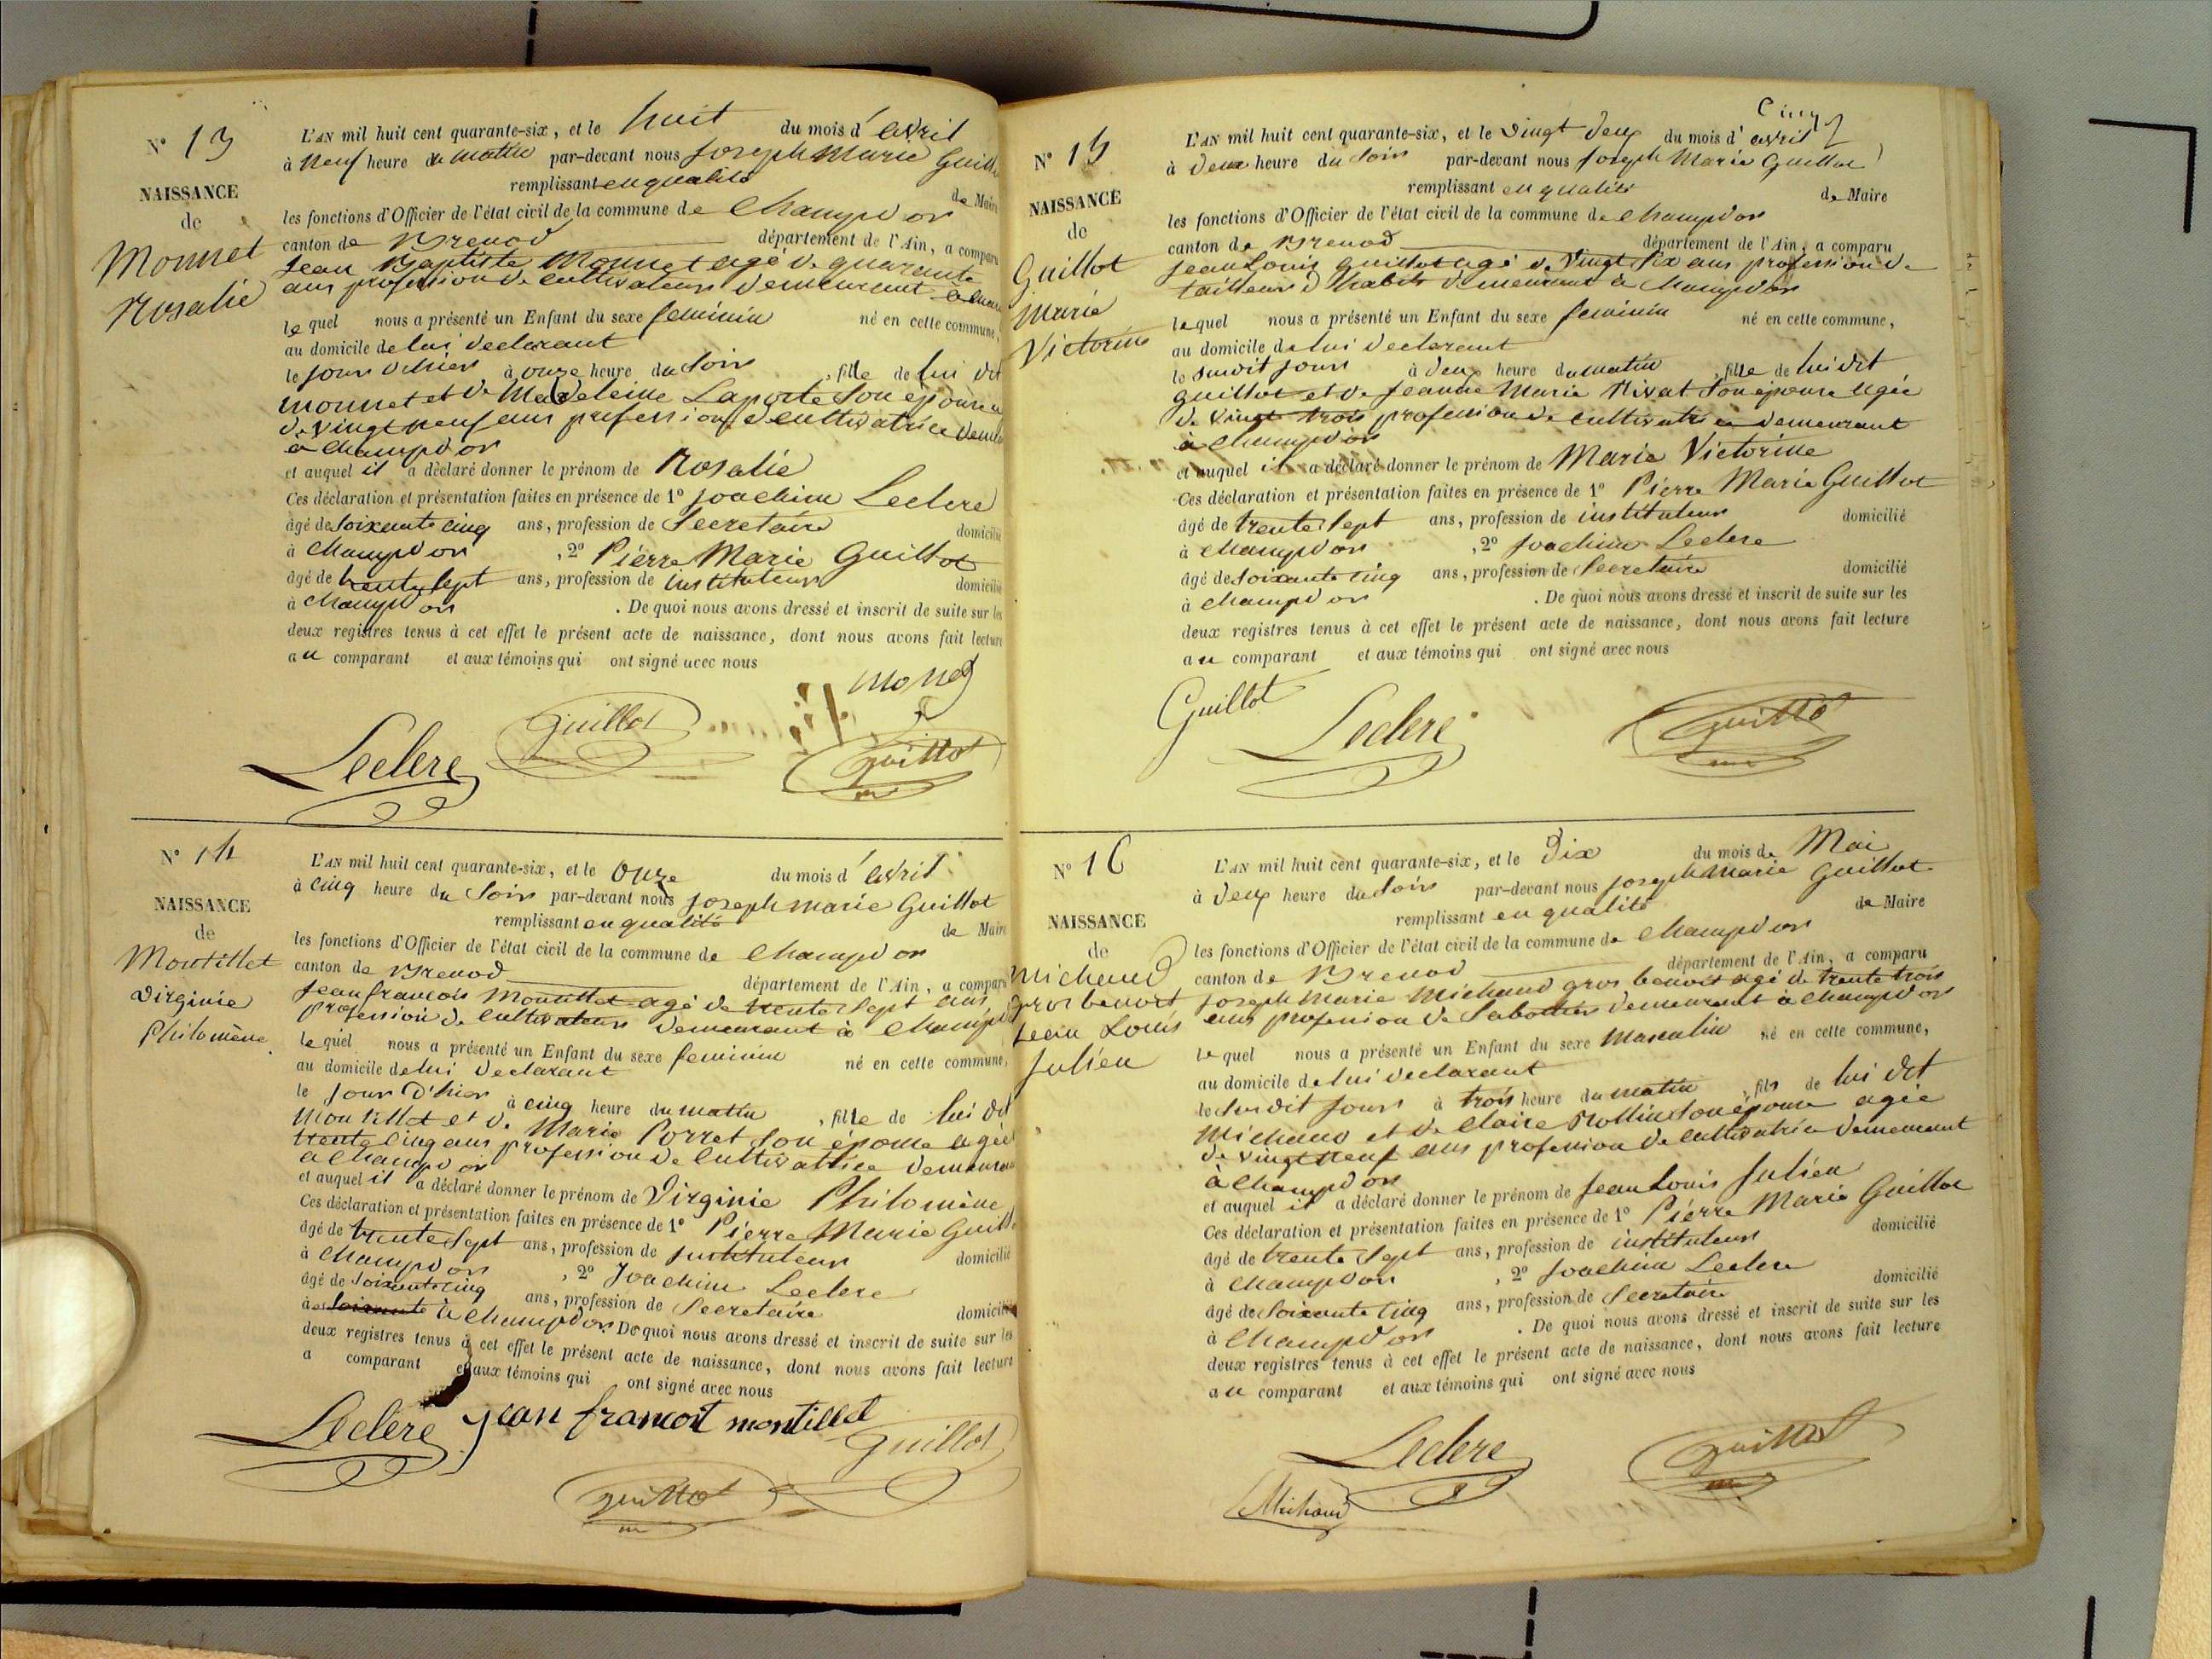 N° 13
NAISSANCE
de
Monnet
Rosalie
L'AN mil huit cent quarante-six, et le huit du mois d'avril
à neuf heure du matin par-devant nous Joseph Marie Guill
remplissant en qualité de Maire
les fonctions d'Officier de l'état civil de la commune de Champdor
canton de Brenod département de l'Ain, a comparu
Jean Baptiste Monnet agé de quarante
ans profession de cultivateur demeurant
lequel nous a présenté un Enfant du sexe feminin né en cette commune,
au domicile de lui declarant
le jour d'hier à onze heure du soir, fille de lui dit
monnet et de Madeleine Laporte son épouse
de vingt neuf ans profession de cultivatrice
à Champdor
et auquel il a déclaré donner le prénom de Rosalie
Ces déclaration et présentation faites en présence de 1° Joachim Leclere
âgé de soixante cinq ans, profession de Secretaire domicilié
à Champdor, 2° Pierre Marie Guillot
âgé de trente sept ans, profession de instituteur domicilié
à Champdor. De quoi nous avons dressé et inscrit de suite sur les
deux registres tenus à cet effet le présent acte de naissance, dont nous avons fait lecture
au comparant et aux témoins qui ont signé avec nous
monet
Guillot
Leclere
Guillot
N° 14
NAISSANCE
de
Montillet
Virginie
Philomène
L'AN mil huit cent quarante-six, et le onze du mois d'avril
à cinq heure du soir par-devant nous Joseph marie Guillot
remplissant en qualité de Maire
les fonctions d'Officier de l'état civil de la commune de Champdor
canton de Brenod département de l'Ain, a comparu
Jean francois Montillet agé de trente sept ans
profession de cultivateur demeurant à Champdor
lequel nous a présenté un Enfant du sexe feminin né en cette commune,
au domicile de lui declarant
le jour d'hier à cinq heure du matin, fille de lui dit
Montillet et de Marie Porret son épouse agée
trente cinq ans profession de cultivattrice demeurant
à Champdor
et auquel il a déclaré donner le prénom de Virginie Philomène
Ces déclaration et présentation faites en présence de 1° Pierre Marie Guillot
âgé de trente sept ans, profession de Instituteur domicilié
à Champdor, 2° Joachim Leclere
âgé de soixante cinq ans, profession de Secretaire domicilié
à soixante à Champdor. De quoi nous avons dressé et inscrit de suite sur les
deux registres tenus à cet effet le présent acte de naissance, dont nous avons fait lecture
a comparant et aux témoins qui ont signé avec nous
Leclere jean francoit montillet
Guillot
Guillot
Cinq
N° 15
NAISSANCE
de
Guillot
Marie
Victorine
L'AN mil huit cent quarante-six, et le vingt deux du mois d'avril
à deux heure du soir par-devant nous Joseph Marie Guillot
remplissant en qualité de Maire
les fonctions d'Officier de l'état civil de la commune de Champdor
canton de Brenod département de l'Ain, a comparu
Jean Louis Guillot agé de vingt six ans profession de
tailleur d'habits demeurant à Champdor
lequel nous a présenté un Enfant du sexe feminin né en cette commune,
au domicile de lui declarant
le susdit jour à deux heure du matin, fille de lui dit
guillot et de Jeanne Marie Rivat son épouse agée
de vingt trois profession de cultivatrice demeurant
à Champdor
et auquel il a déclaré donner le prénom de Marie Victorine
Ces déclaration et présentation faites en présence de 1° Pierre Marie Guillot
âgé de trente sept ans, profession de instituteur domicilié
à Champdor, 2° Joachim Leclere
âgé de soixante cinq ans, profession de Secretaire domicilié
à Champdor. De quoi nous avons dressé et inscrit de suite sur les
deux registres tenus à cet effet le présent acte de naissance, dont nous avons fait lecture
au comparant et aux témoins qui ont signé avec nous
Guillot
Leclere
Guillot
N° 16
NAISSANCE
de
Michaud
gros benoit
Jean Louis
Julien
L'AN mil huit cent quarante-six, et le Dix du mois de Mai
à deux heure du soir par-devant nous Joseph Marie Guillot
remplissant en qualité de Maire
les fonctions d'Officier de l'état civil de la commune de Champdor
canton de Brenod département de l'Ain, a comparu
Joseph Marie Michaud gros benoit agé de trente trois
ans profession de Sabottier demeurant à Champdor
lequel nous a présenté un Enfant du sexe masculin né en cette commune,
au domicile de lui declarant
le susdit jour à trois heure du matin, fils de lui dit
Michaud et de Claire Rollin son épouse agée
de vingt neuf ans profession de cultivatrice demeurant
à Champdor
et auquel il a déclaré donner le prénom de Jean Louis Julien
Ces déclaration et présentation faites en présence de 1° Pierre Marie Guillot
âgé de trente sept ans, profession de instituteur domicilié
à Champdor, 2° Joachim Leclere
âgé de soixante cinq ans, profession de Secretaire domicilié
à Champdor. De quoi nous avons dressé et inscrit de suite sur les
deux registres tenus à cet effet le présent acte de naissance, dont nous avons fait lecture
au comparant et aux témoins qui ont signé avec nous
Leclere
Guillot
Michaud